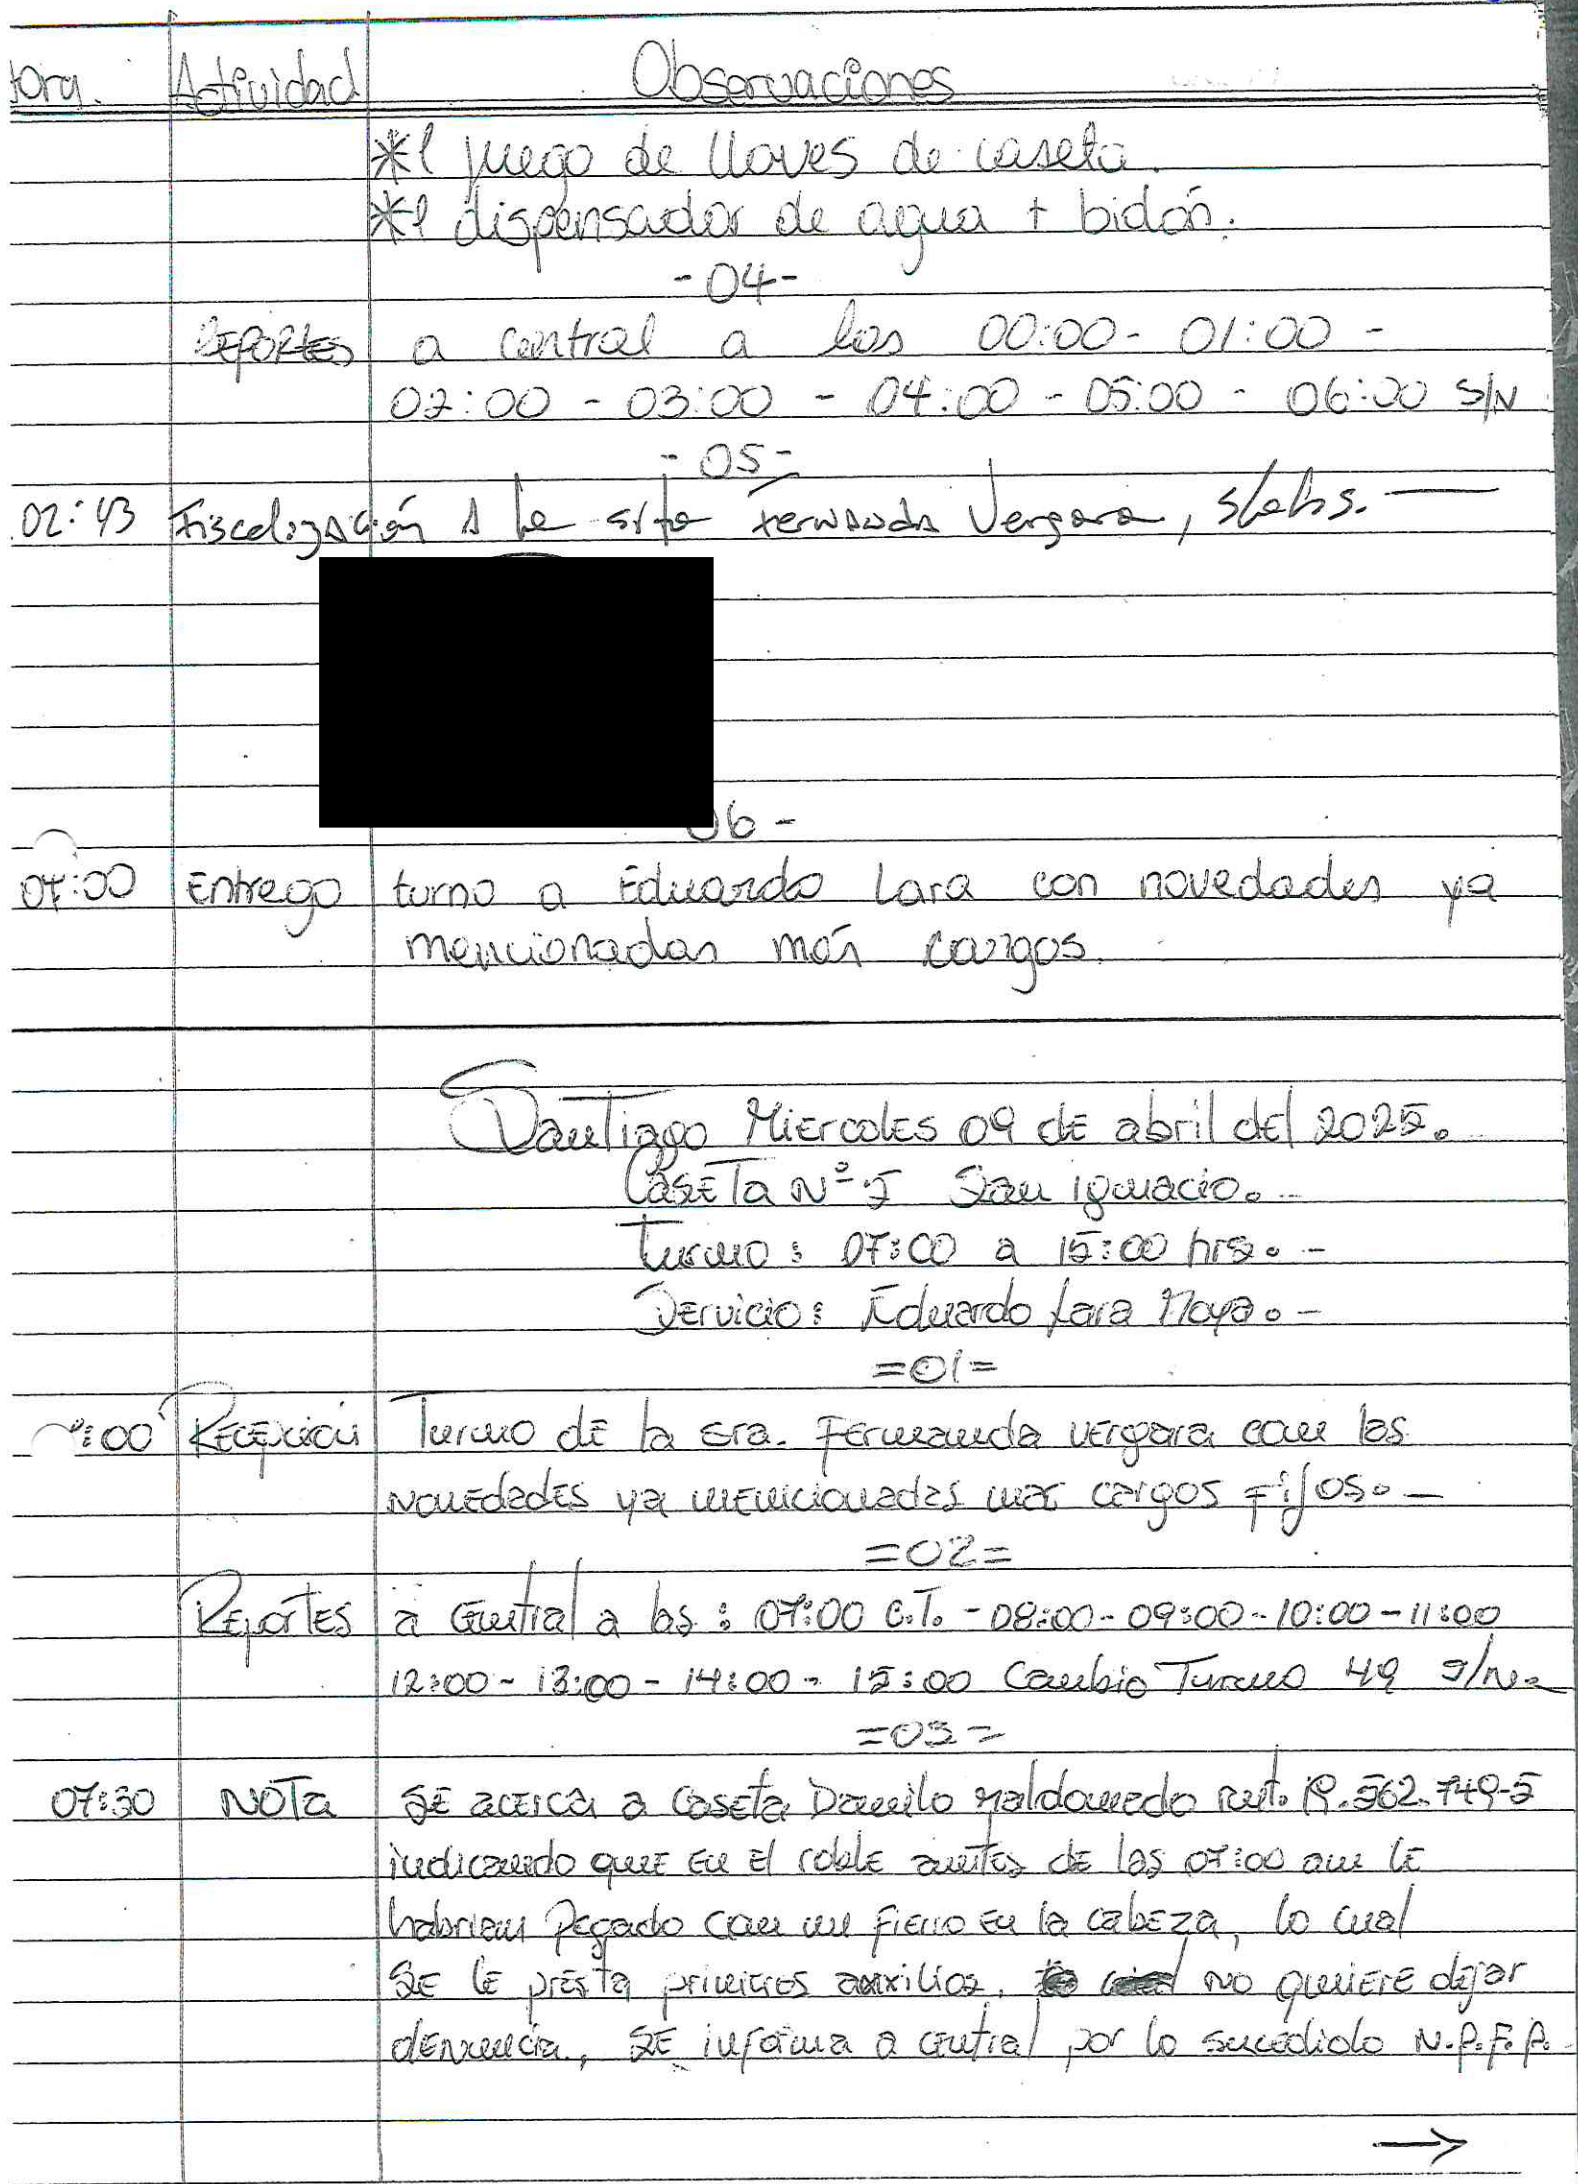 Hora. Actividad Observaciones
*1 juego de llaves de caseta.
*1 dispensador de agua + bidón.
-04-
Reportes a central a las 00:00 - 01:00 -
02:00 - 03:00 - 04:00 - 05:00 - 06:00 S/N
-05-
02:43 Fiscalización a la srta Fernanda Vergara, s/obs.
06-
07:00 Entrego turno a Eduardo Lara con novedades ya
mencionadas más cargos.
Santiago Miercoles 09 de abril del 2025.
Caseta Nº 5 San ignacio.
Turno: 07:00 a 15:00 hrs.-
Servicio: Eduardo Lara Moya.-
=01=
:00 Recepción Turno de la sra. Fernanda vergara con las
novedades ya mencionadas mas cargos fijos.-
=02=
Reportes a Central a las: 07:00 C.T. - 08:00 - 09:00 - 10:00 - 11:00
12:00 - 13:00 - 14:00 - 15:00 Cambio Turno 49 S/N.-
=03=
07:30 Nota se acerca a caseta Danilo Maldonado rut. 19.562.749-5
indicando que en el roble antes de las 07:00 am le
habrian pegado con un fierro en la cabeza, lo cual
se le presta primeros auxilios, no quiere dejar
denuncia, se informa a central por lo sucedido N.P.F.P.
→